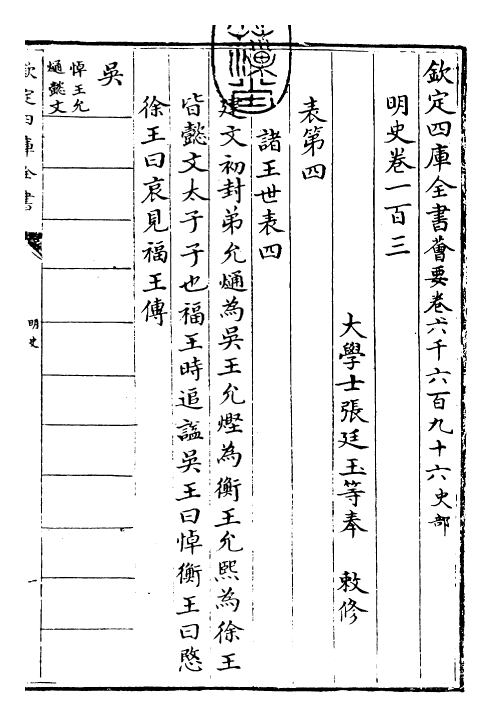 欽定四庫全書薈要卷六千六百九十六史部
明史卷一百三
大學士張廷玉等奉 敕修
表第四
諸王世表四
建文初封弟允熥為吳王允熞為衡王允熙為徐王
皆懿文太子子也福王時追諡吳王曰悼衡王曰愍
徐王曰哀見福王傳
吳
悼王允
熥懿文
欽定四庫全書
明史